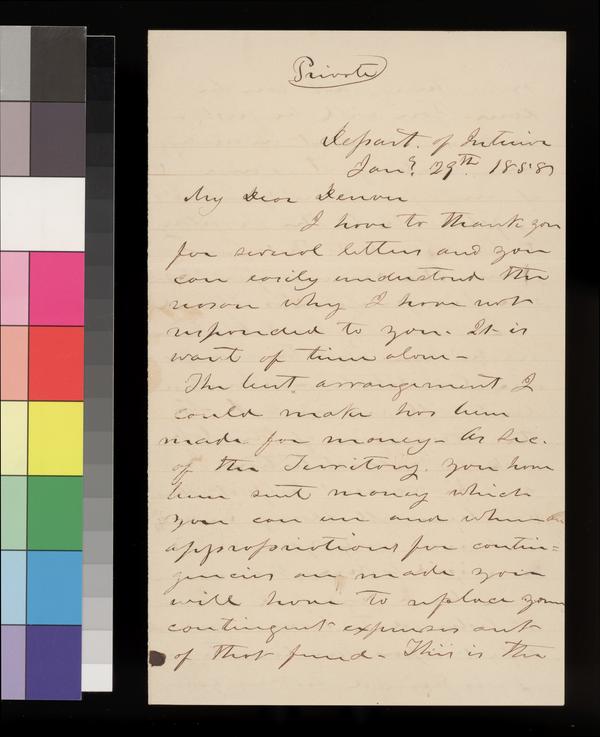 Private
Depart. of Interior
Jany. 29th. 1858
My Dear Denver
I have to thank you
for several letters and you
can easily understand the
reason why I have not
responded to you. It is
want of time alone-
The best arrangement I
could make has been
made for money- As Sec.
of the Territory. you have
been sent money which
you can use and when an
appropriations for contin=
gencies are made you
will have to replace your
contingent expenses out
of that fund- This is the